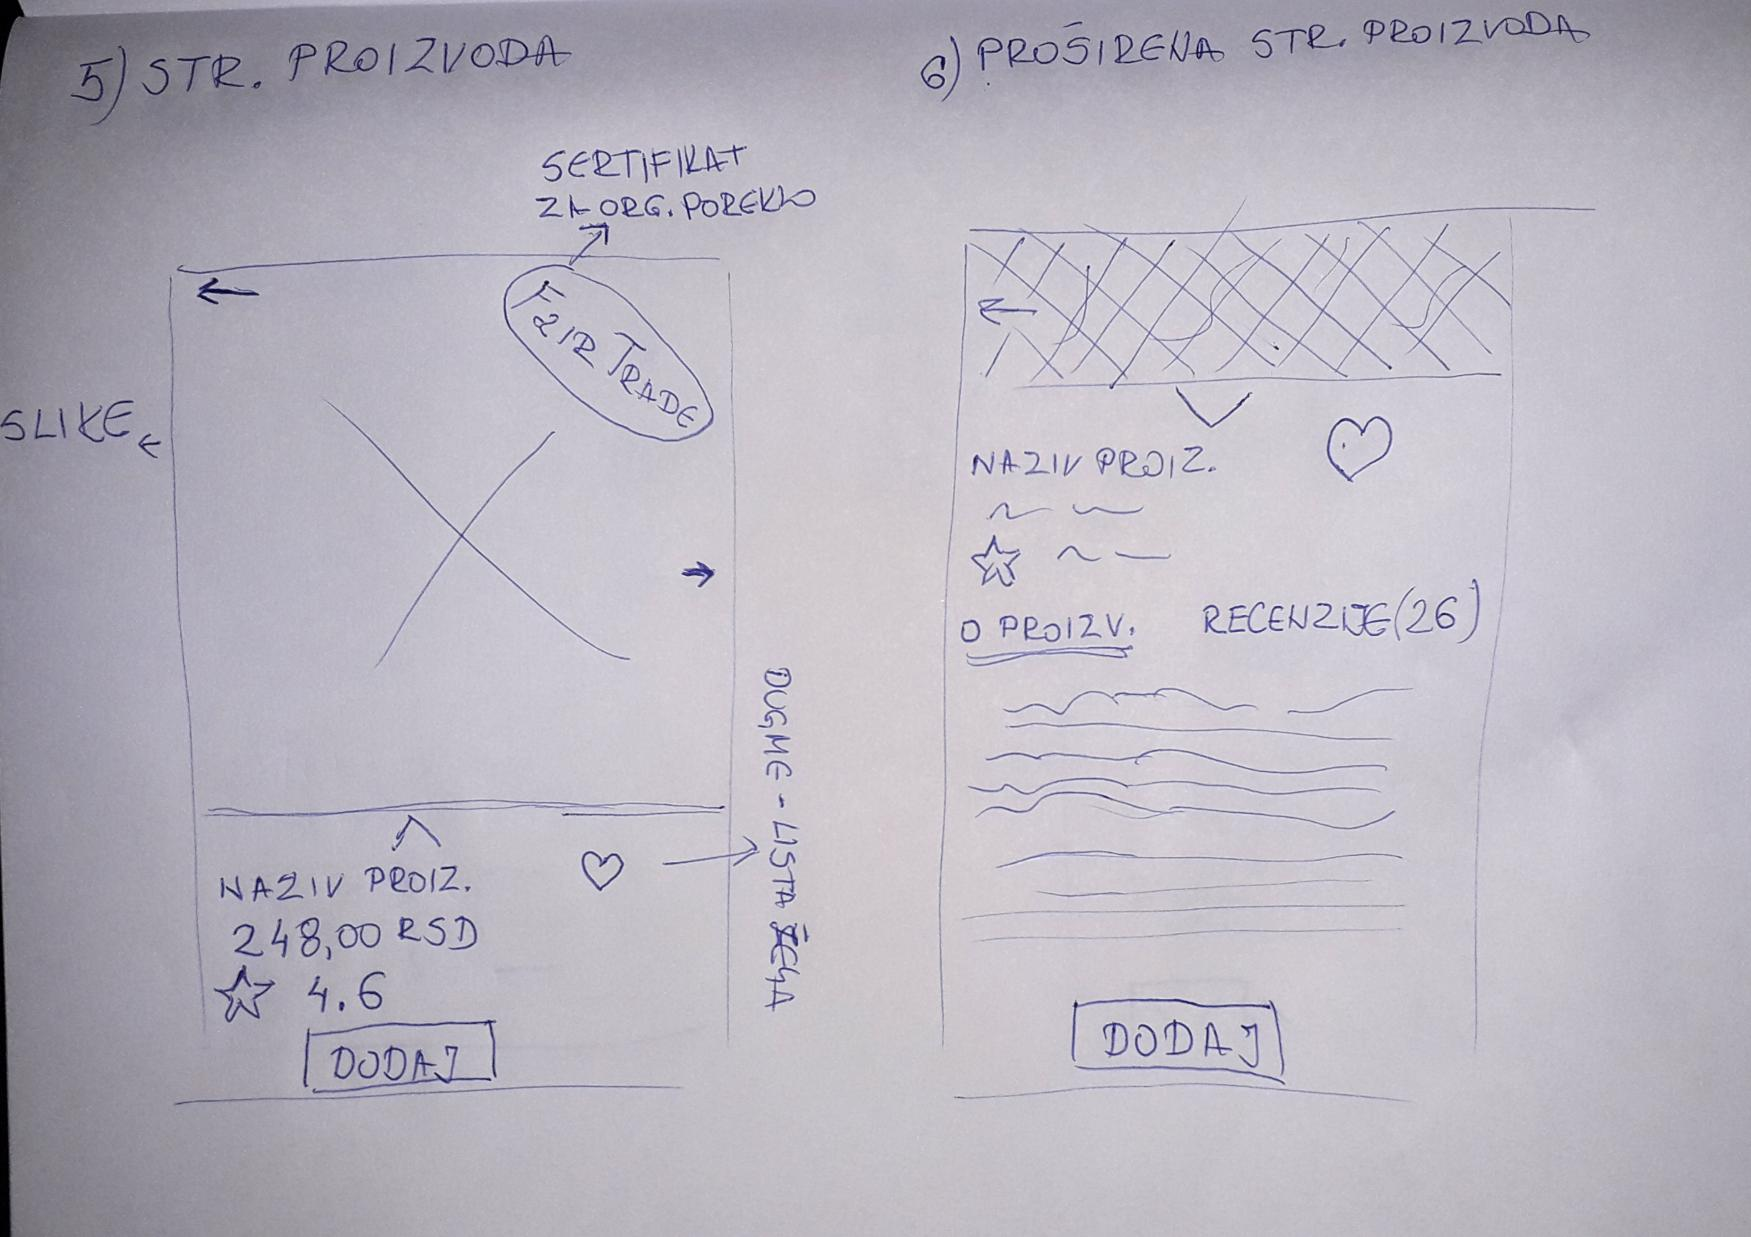 5) STR. PROIZVODA
SERTIFIKAT
ZA ORG. POREKLO
FAIR TRADE
SLIKE
NAZIV PROIZ.
248,00 RSD
4.6
DODAJ
DUGME - LISTA ŽELJA
6) PROŠIRENA STR. PROIZVODA
NAZIV PROIZ.
O PROIZV. RECENZIJE (26)
DODAJ